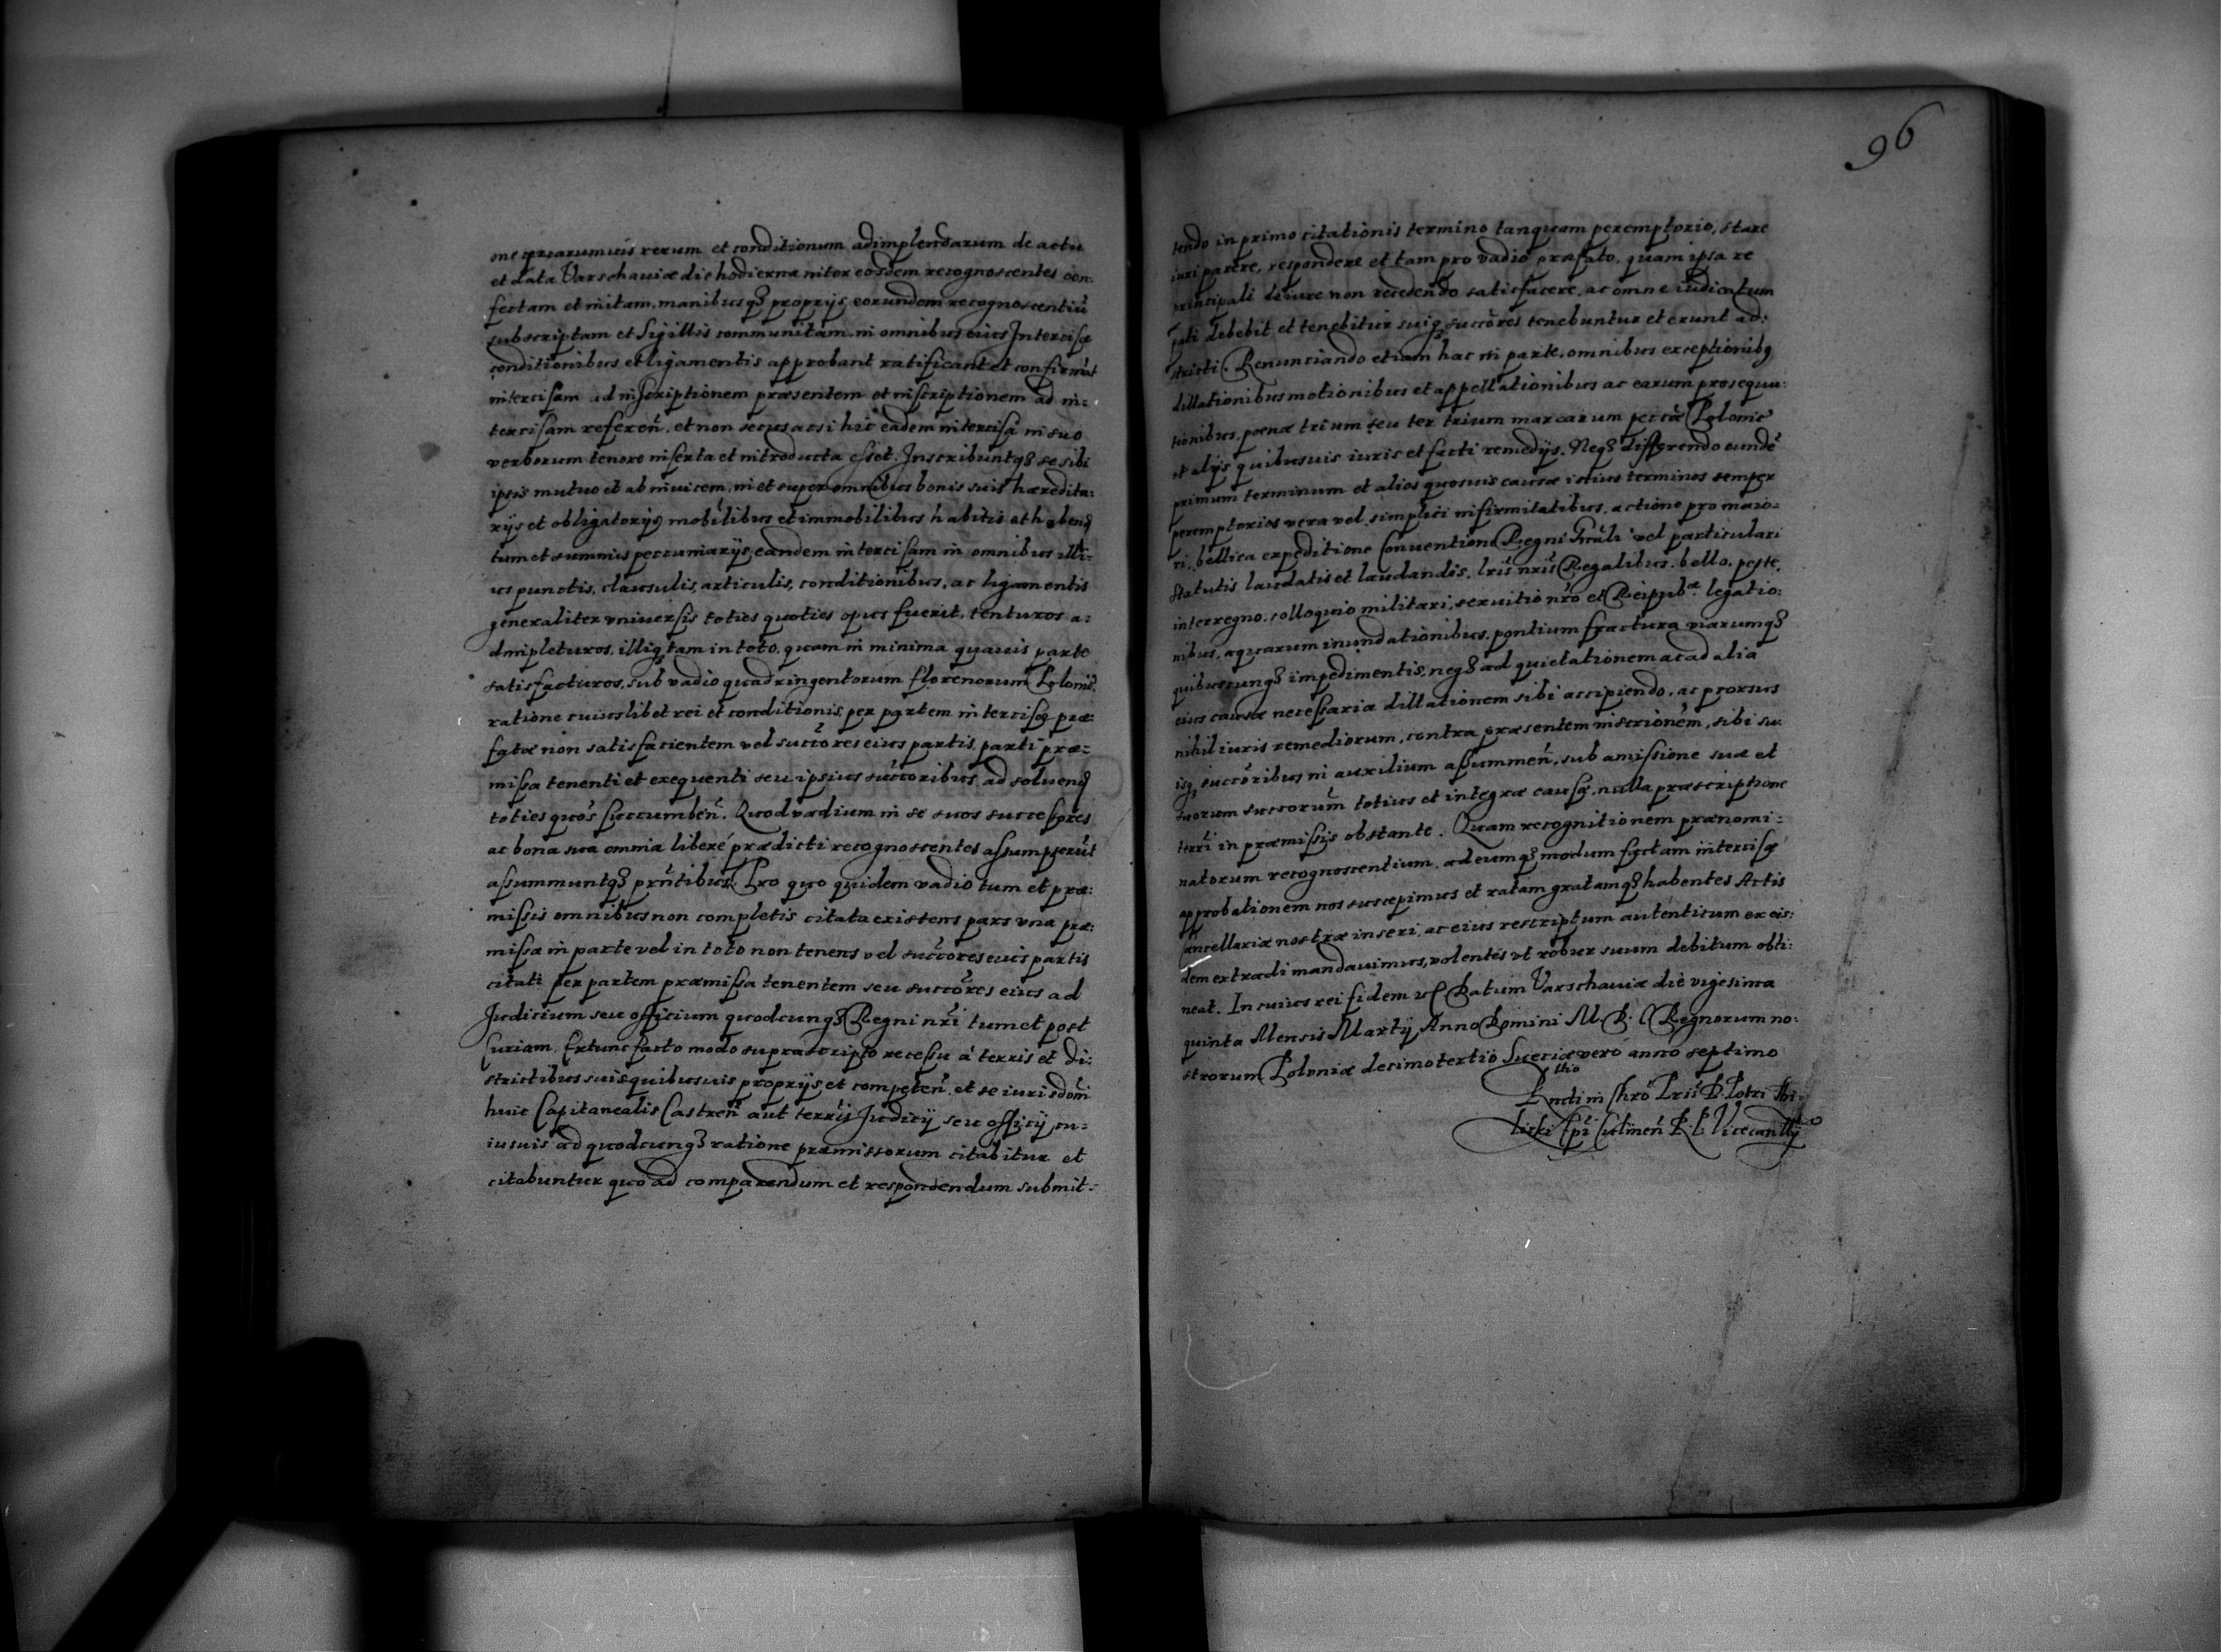 one quarumvis rerum et conditionum adimplendarum de actu
et data Varschaviæ die hodierna inter eosdem recognoscentes con:
fectam et initam, manibusq3 proprijs eorundem recognoscentiū
subscriptam et Sigillis communitam, in omnibus eius Intercisæ
conditionibus et ligamentis approbant ratificant et confirmāt
intercisam ad inscriptionem præsentem et inscriptionem ad in:
tercisam referen̄, et non secus ac si hic eadem intercisa in suo
verborum tenore inserta et introducta esset. Inscribuntq3 se sibi
ipsis mutuo et ab invicem, in et super omnibus bonis suis hæredita:
rijs et obligatorijs mobilibus et immobilibus habitis et habend
tum et summis pecuniarijs, eandem intercisam in omnibus illi:
us punctis, clausulis, articulis, conditionibus, ac ligamentis
generaliter vniuersis toties quoties opus fuerit, tenturos a:
dimpleturos, illiq3 tam in toto, quam in minima quavis parte
satisfacturos, sub vadio quadringentorum florenorum Polonic̄.
ratione cuiuslibet rei et conditionis, per partem intercisæ præ:
fatæ non satisfacientem vel succōres eius partis, parti præ:
missa tenenti et exequenti seu ipsius succōribus, ad soluend
toties quōs succumben̄. Quod vadium in se suos successores
ac bona sua omnia liberè prædicti recognoscentes assumpserūt
assummuntq3 prn̄tibus. Pro quo quidem vadio tum et præ:
missis omnibus non completis citata existens pars vna præ:
missa in parte vel in toto non tenens vel succōres eius partis
citati per partem præmissa tenentem seu succōres eius ad
Judicium seu officium quodcunq3 Regni nr̄i tum et post
Curiam. Extunc facto modo suprascripto recessu à terris et di:
strictibus suis quibusuis proprijs et competen̄. et se iurisdōni
huic Capitanealis Castren̄ aut terrīj Judicij seu officij cu:
iusuis ad quodcunq3 ratione præmissorum citabitur et
citabuntur quo ad comparendum et respondendum submit:
96
tendo in primo citationis termino tanquam peremptorio, stare
iuri parere, respondere et tam pro vadio præfato, quam ipsa re
principali de iure non recedendo satisfacere, ac omne iudicatum
pati debebit et tenebitur suiq3 succōres tenebuntur et erunt ad:
stricti. Renunciando etiam hac in parte, omnibus exceptionibq
dillationibus motionibus et appellationibus ac earum prosequu:
tionibus, poenæ trium seu ter trium marcarum peccæ Polonic̄
et alijs quibusuis iuris et facti remedijs. Neq3 differendo eundē
primum terminum et alios quosuis causæ istius terminos semper
peremptorios vera vel simplici infirmitatibus, actione pro maio:
ri, bellica expeditione Conventione Regni Gn̄ali vel particulari
statutis laudatis et laudandis, lrīs nr̄is Regalibus, bello, peste,
interregno, colloquio militari, seruitio nr̄o et Reipubᵃᵉ. legatio:
nibus, aquarum inundationibus, pontium fractura viarumq3
quibuscunq3 impedimentis, neq3 ad quietationem ac ad alia
eius causæ necessaria dillationem sibi accipiendo, ac prorsus
nihil iuris remediorum, contra præsentem inscriōnem, sibi su:
isq3 succōribus in auxilium assummen̄, sub amissione suæ et
suorum succorum̄ totius et integræ causæ, nulla præscriptione
terrī in præmissis obstante. Quam recognitionem prænomi:
natorum recognoscentium, ad eumq3 modum factam intercisæ
approbationem nos suscepimus et ratam gratamq3 habentes Actis
Cancellariæ nostræ inseri, ac eius rescriptum autenticum ex eis:
dem extradi mandavimus, volentes vt robur suum debitum obti:
neat. In cuius rei fidem Datum Varschaviæ die vigesima
quinta Mensis Martij Anno Domini M. D. C Regnorum no:
strorum Poloniæ decimotertio Sueciæ vero anno septimo
Petri
Epī Culmen̄ R. P. Vicecancllij